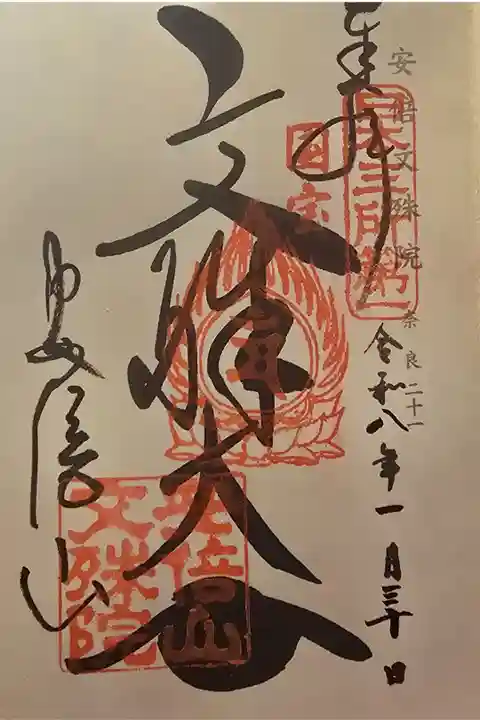 奉拝
安倍文殊院
奈良二十一
日本三所第一
令和八年一月三十日
国宝
文殊大
安倍山
安倍山
文殊院